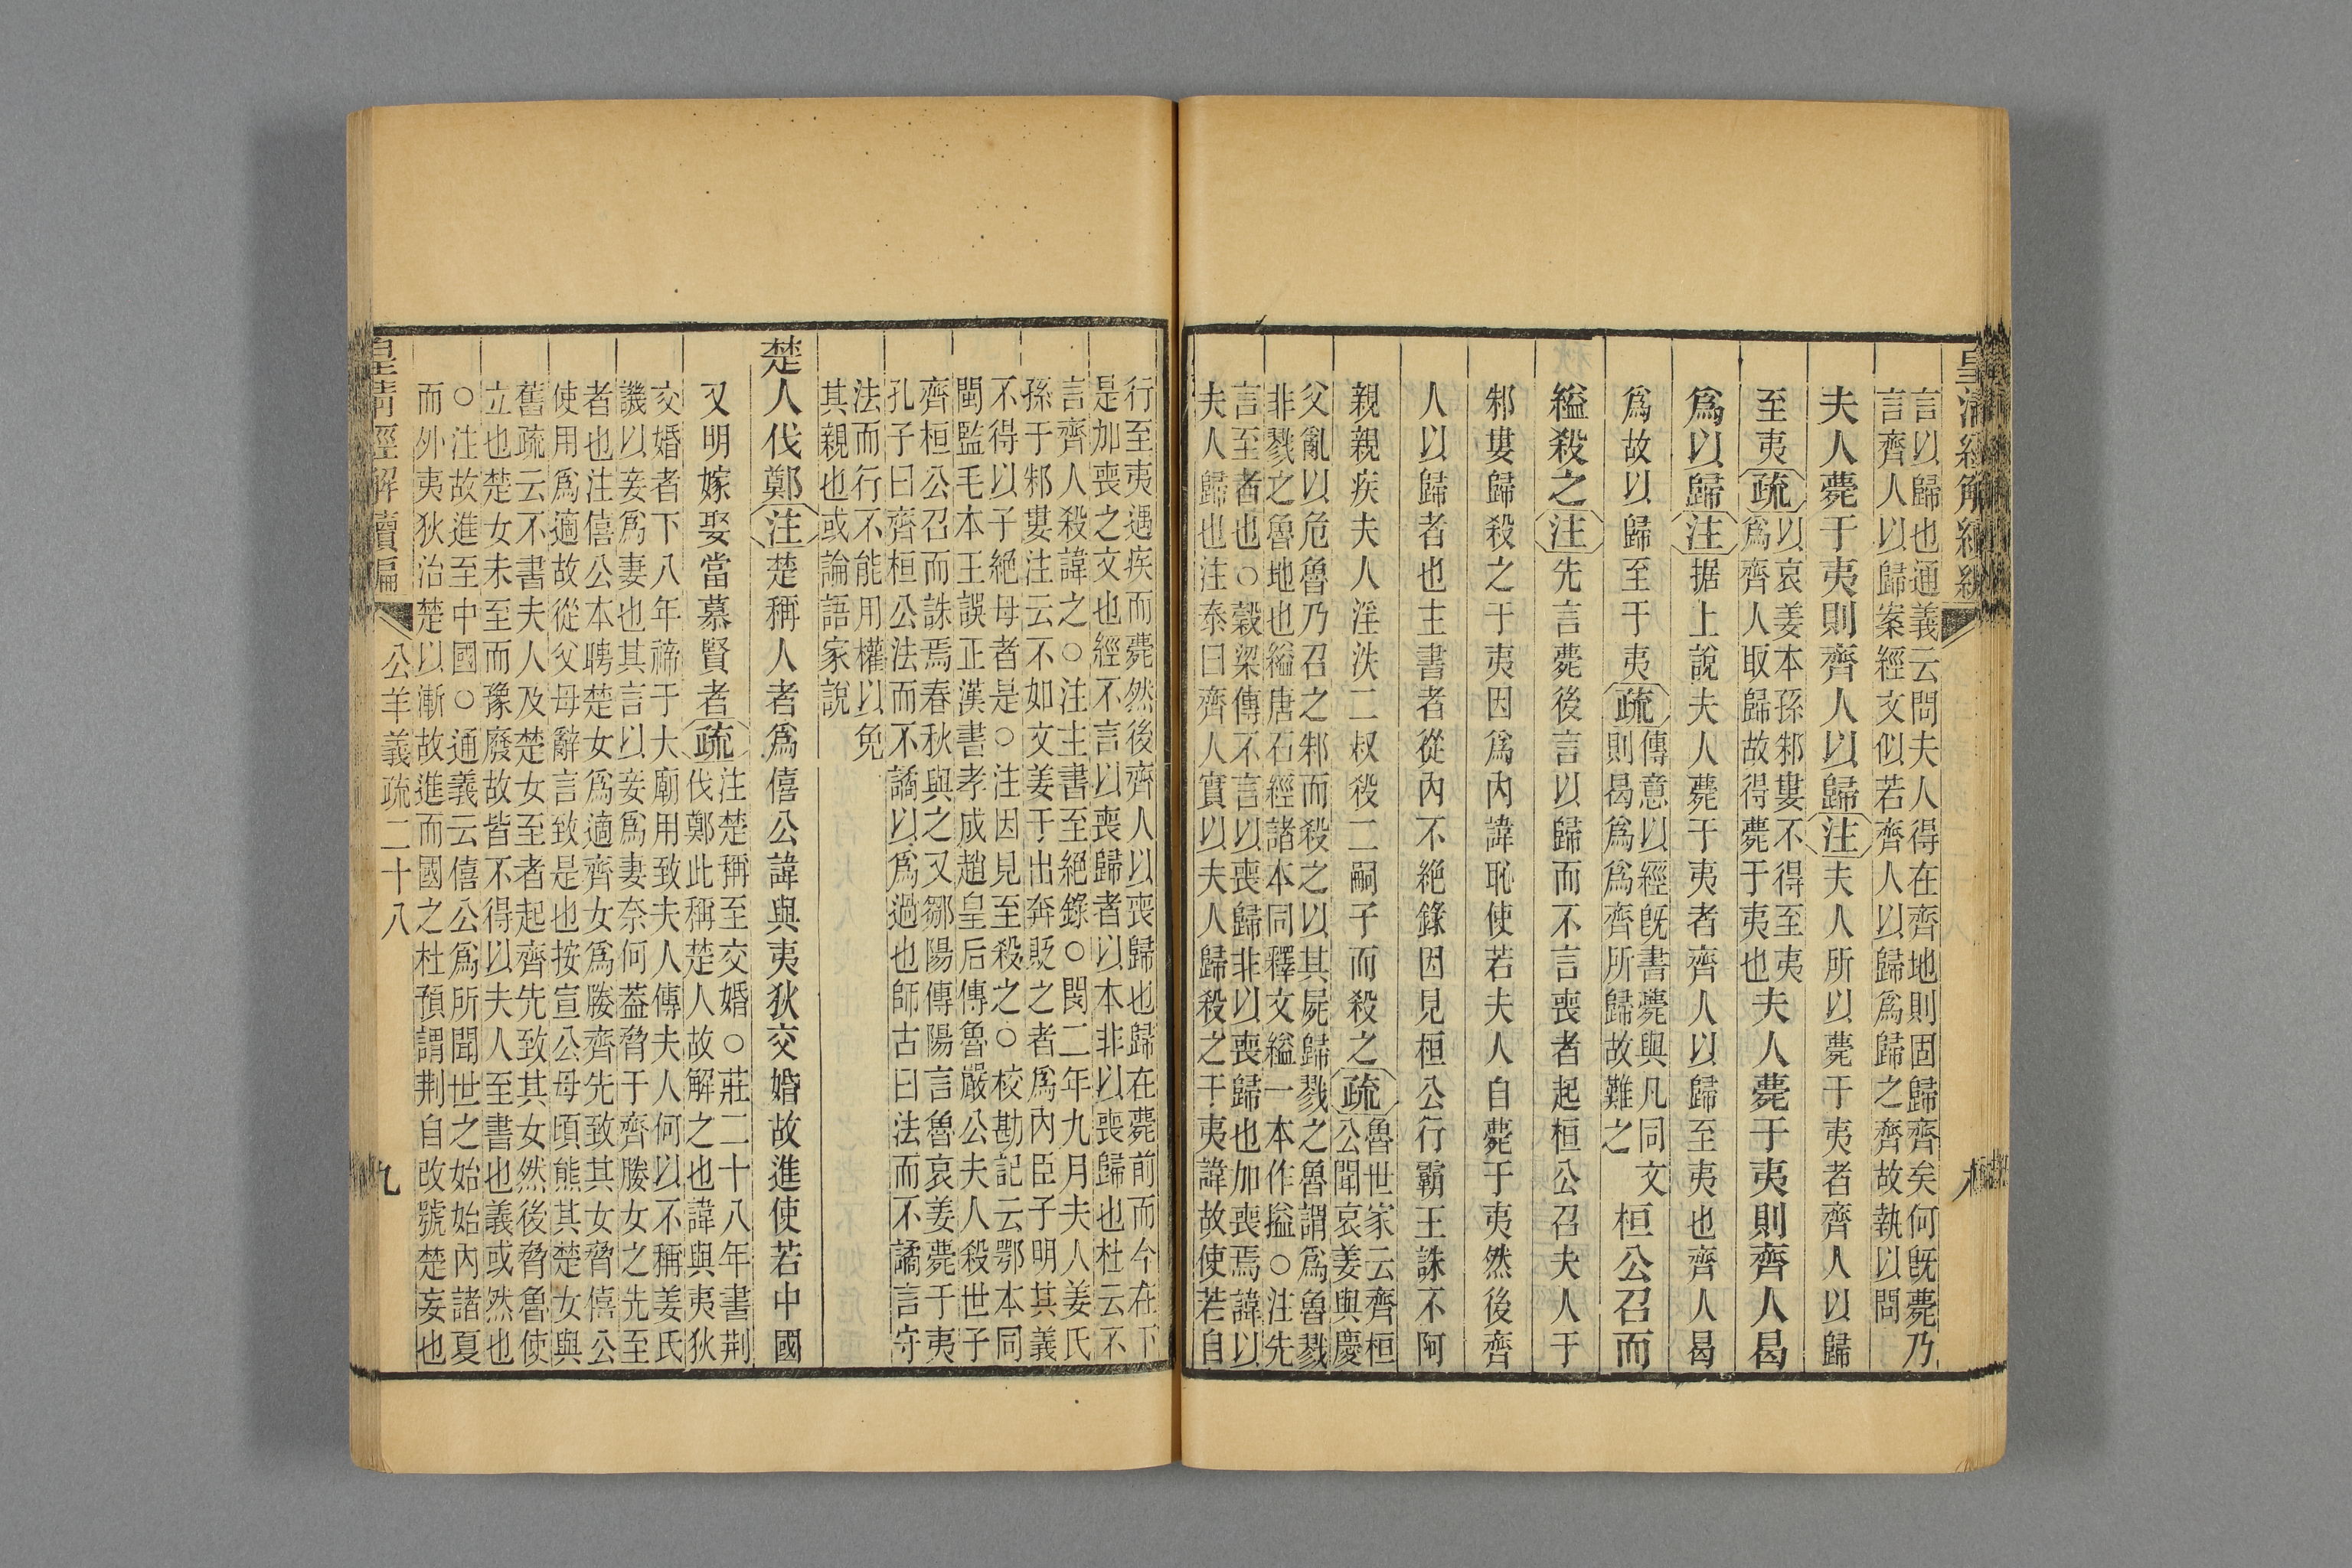 皇清經解續編
八
言以歸也通義云問夫人得在齊地則固歸齊矣何旣薨乃
言齊人以歸案經文似若齊人以歸爲歸之齊故執以問
夫人薨于夷則齊人以歸注夫人所以薨于夷者齊人以歸
至夷疏以哀姜本孫邾婁不得至夷
爲齊人取歸故得薨于夷也夫人薨于夷則齊人曷
爲以歸注据上說夫人薨于夷者齊人以歸至夷也齊人曷
爲故以歸至于夷疏傳意以經旣書薨與凡同文
則曷爲爲齊所歸故難之桓公召而
縊殺之注先言薨後言以歸而不言喪者起桓公召夫人于
邾婁歸殺之于夷因爲內諱恥使若夫人自薨于夷然後齊
人以歸者也主書者從內不絶錄因見桓公行霸王誅不阿
親親疾夫人淫泆二叔殺二嗣子而殺之疏魯世家云齊桓
公聞哀姜與慶
父亂以危魯乃召之邾而殺之以其屍歸戮之魯謂爲魯戮
非戮之魯地也縊唐石經諸本同釋文縊一本作搤○注先
言至者也○穀梁傳不言以喪歸非以喪歸也加喪焉諱以
夫人歸也注泰曰齊人實以夫人歸殺之于夷諱故使若自
行至夷遇疾而薨然後齊人以喪歸也歸在薨前而今在下
是加喪之文也經不言以喪歸者以本非以喪歸也杜云不
言齊人殺諱之○注主書至絶錄○閔二年九月夫人姜氏
孫于邾婁注云不如文姜于出奔貶之者爲內臣子明其義
不得以子絶母者是○注因見至殺之○校勘記云鄂本同
閩監毛本王誤正漢書孝成趙皇后傳魯嚴公夫人殺世子
齊桓公召而誅焉春秋與之又鄒陽傳陽言魯哀姜薨于夷
孔子曰齊桓公法而不譎以爲過也師古曰法而不譎言守
法而行不能用權以免
其親也或論語家說
楚人伐鄭注楚稱人者爲僖公諱與夷狄交婚故進使若中國
又明嫁娶當慕賢者疏注楚稱至交婚○莊二十八年書荆
伐鄭此稱楚人故解之也諱與夷狄
交婚者下八年禘于大廟用致夫人傳夫人何以不稱姜氏
譏以妾爲妻也其言以妾爲妻奈何葢脅于齊媵女之先至
者也注僖公本聘楚女爲適齊女爲媵齊先致其女脅僖公
使用爲適故從父母辭言致是也按宣公母頃熊其楚女與
舊疏云不書夫人及楚女至者起齊先致其女然後脅魯使
立也楚女未至而豫廢故皆不得以夫人至書也義或然也
○注故進至中國○通義云僖公爲所聞世之始始內諸夏
而外夷狄治楚以漸故進而國之杜預謂荆自改號楚妄也
皇清經解續編
公羊義疏二十八
九